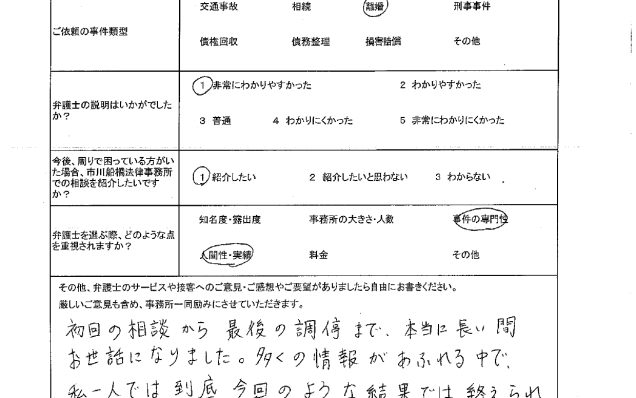 ご依頼の事件類型
交通事故 相続 離婚 刑事事件
債権回収 債務整理 損害賠償 その他
弁護士の説明はいかがでした
か？
1 非常にわかりやすかった 2 わかりやすかった
3 普通 4 わかりにくかった 5 非常にわかりにくかった
今後、周りで困っている方がい
た場合、市川船橋法律事務所
での相談を紹介したいです
か？
1 紹介したい 2 紹介したいと思わない 3 わからない
弁護士を選ぶ際、どのような点
を重視されますか？
知名度・露出度 事務所の大きさ・人数 事件の専門性
人間性・実績 料金 その他
その他、弁護士のサービスや接客へのご意見・ご感想やご要望がありましたら自由にお書きください。
厳しいご意見も含め、事務所一同励みにさせていただきます。
初回の相談から最後の調停まで、本当に長い間
お世話になりました。多くの情報があふれる中で、
私一人では到底今回のような結果では終えられ